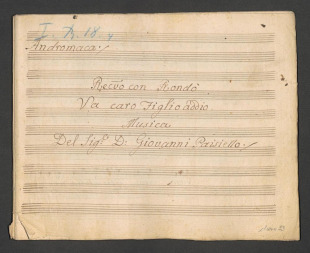 I. B. 18
Andromaca
Rec:vo con Rondò
Va caro Figlio addio
Musica
Del Sig.r D: Giovanni Paisiello